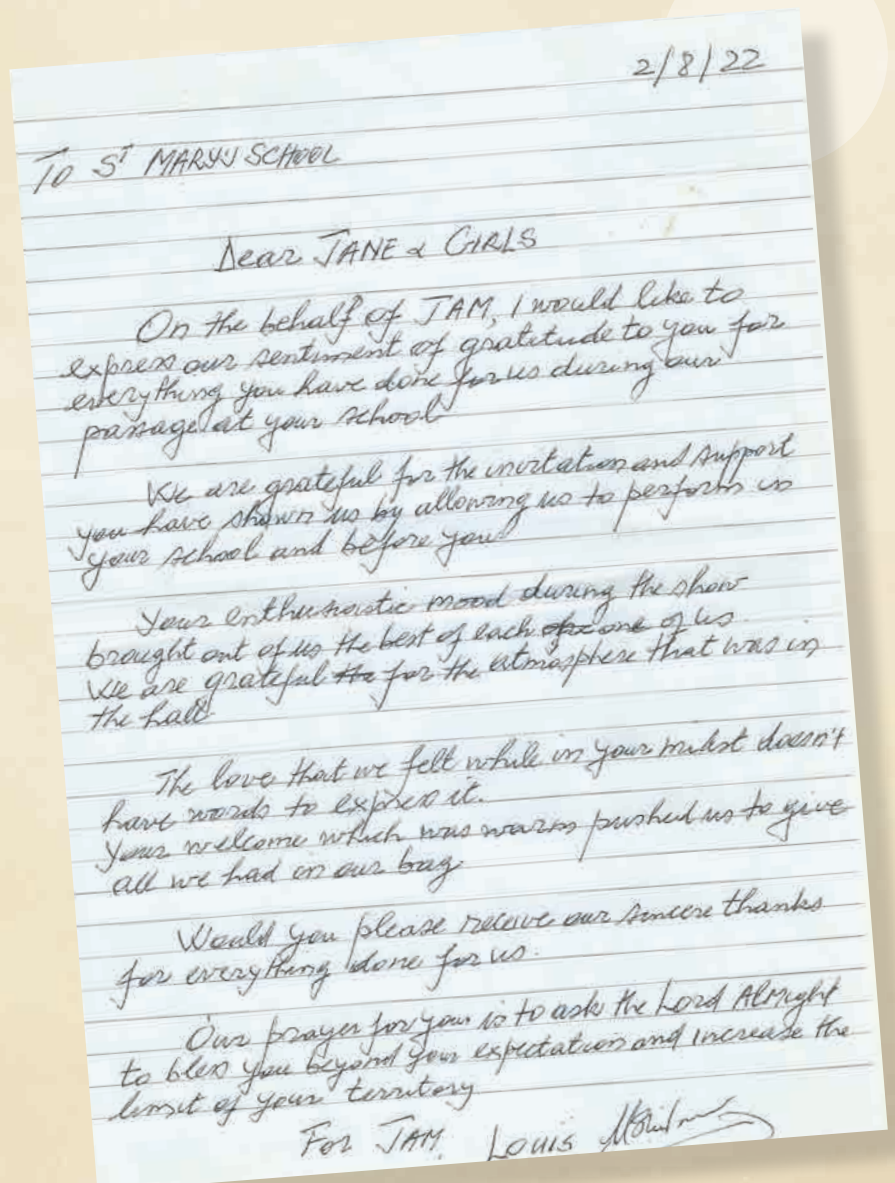 2/8/22
To ST MARYS SCHOOL
Dear JANE & GIRLS
On the behalf of JAM, I would like to
express our sentiment of gratitude to you for
everything you have done for us during our
passage at your school
We are grateful for the invitation and support
you have shown us by allowing us to perform in
your school and before you
Your enthusiastic mood during the show
brought out of us the best of each of us
We are grateful for the atmosphere that was in
the hall
The love that we felt while in your midst doesn't
have words to express it.
Your welcome which was warm pushed us to give
all we had on our bag.
Would you please receive our sincere thanks
for everything done for us.
Our prayer for you is to ask the Lord Almight
to bless you beyond your expectation and increase the
limit of your territory
For JAM. Louis